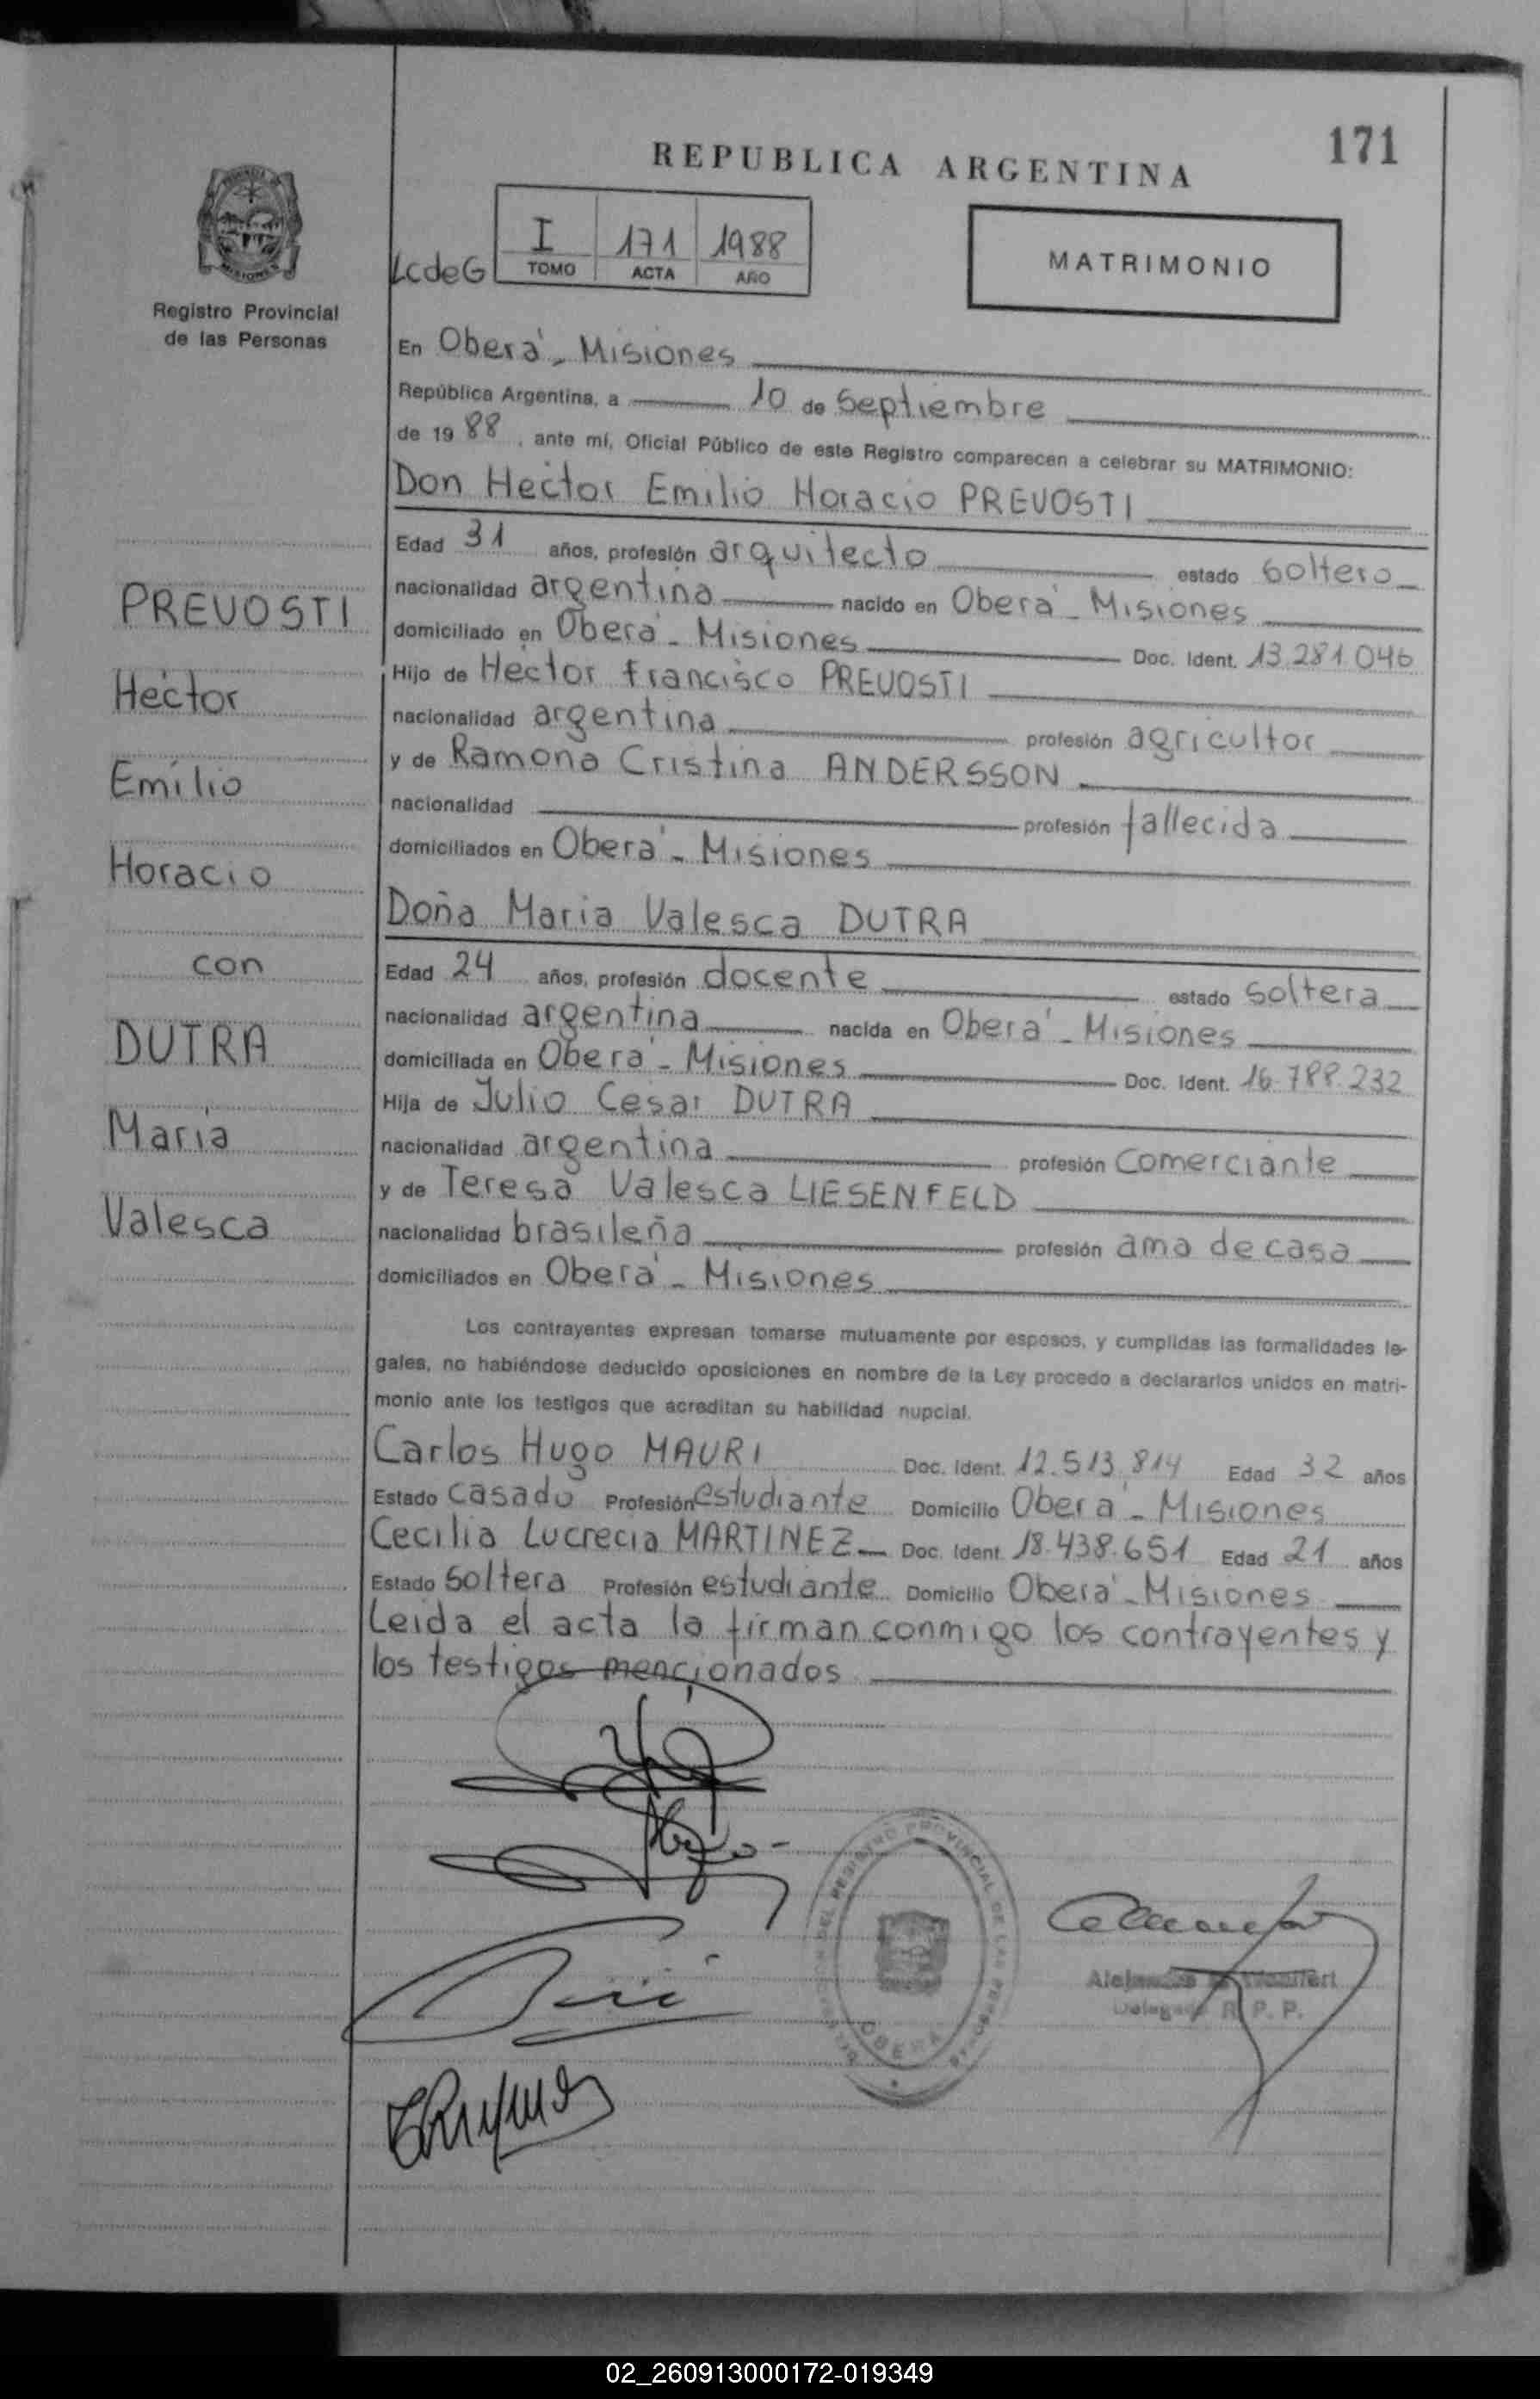 171
REPUBLICA ARGENTINA
LcdeG
I 171 1988
TOMO ACTA AÑO
MATRIMONIO
MISIONES
Registro Provincial
de las Personas
En Oberá - Misiones
República Argentina, a 10 de Septiembre
de 1988, ante mí, Oficial Público de este Registro comparecen a celebrar su MATRIMONIO:
Don Héctor Emilio Horacio PREVOSTI
Edad 31 años, profesión arquitecto estado soltero
nacionalidad argentina nacido en Oberá - Misiones
domiciliado en Oberá - Misiones Doc. Ident. 13.281.046
Hijo de Héctor Francisco PREVOSTI
nacionalidad argentina profesión agricultor
y de Ramona Cristina ANDERSSON
nacionalidad profesión fallecida
domiciliados en Oberá - Misiones
Doña Maria Valesca DUTRA
Edad 24 años, profesión docente estado soltera
nacionalidad argentina nacida en Oberá - Misiones
domiciliada en Oberá - Misiones Doc. Ident. 16.788.232
Hija de Julio Cesar DUTRA
nacionalidad argentina profesión comerciante
y de Teresa Valesca LIESENFELD
nacionalidad brasileña profesión ama de casa
domiciliados en Oberá - Misiones
PREVOSTI
Héctor
Emilio
Horacio
con
DUTRA
Maria
Valesca
Los contrayentes expresan tomarse mutuamente por esposos, y cumplidas las formalidades le-
gales, no habiéndose deducido oposiciones en nombre de la Ley procedo a declararlos unidos en matri-
monio ante los testigos que acreditan su habilidad nupcial.
Carlos Hugo MAURI Doc. Ident. 12.513.814 Edad 32 años
Estado casado Profesión estudiante Domicilio Oberá - Misiones
Cecilia Lucrecia MARTINEZ Doc. Ident. 18.438.651 Edad 21 años
Estado soltera Profesión estudiante Domicilio Oberá - Misiones
Leida el acta la firman conmigo los contrayentes y
los testigos mencionados
DEL REGISTRO PROVINCIAL DE LAS PERSONAS
OBERA
Delegado R. P. P.
02_260913000172-019349